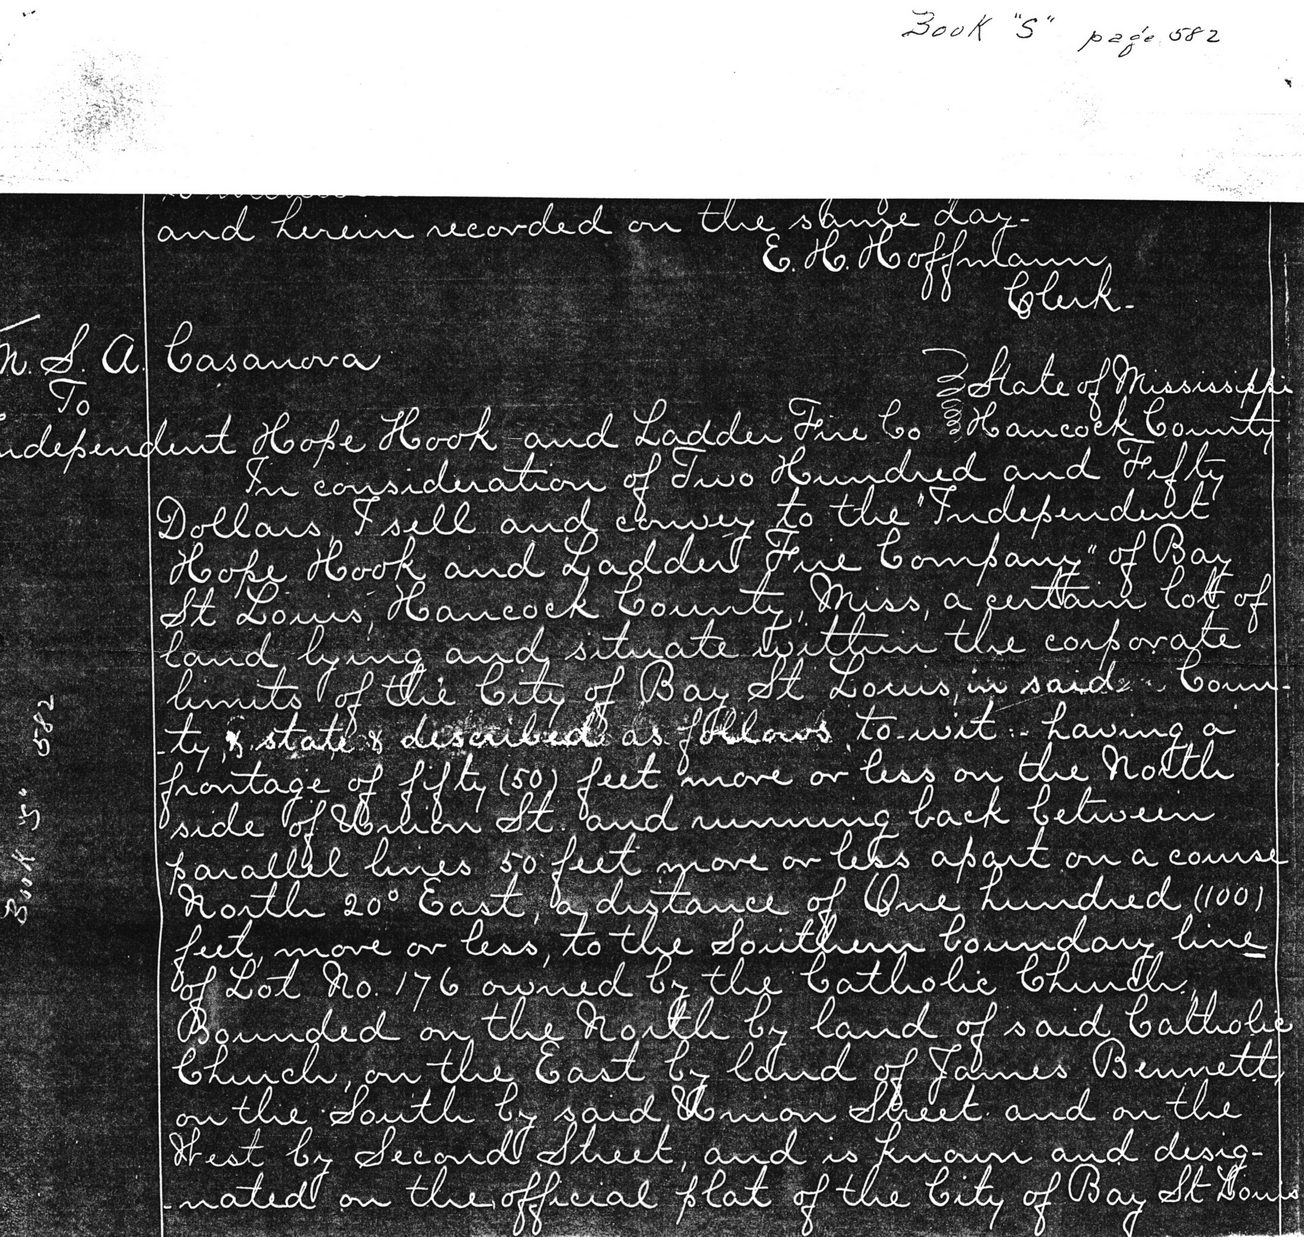 Book "S" page 582
and herein recorded on the same day-
E. H. Hoffmann
Clerk-
S. A. Casanova
To
State of Mississippi
Independent Hope Hook and Ladder Fire Co Hancock County
In consideration of Two Hundred and Fifty
Dollars, I sell and convey to the "Independent
Hope Hook and Ladder Fire Company" of Bay
St Louis, Hancock County, Miss, a certain lott of
land, lying and situate within the corporate
limits of the City of Bay St Louis, in said Coun-
-ty, & state & described as follows, to-wit:- having a
frontage of fifty (50) feet more or less on the North
side of Union St. and running back between
parallel lines 50 feet more or less apart on a course
North 20° East, a distance of One hundred (100)
feet, more or less, to the Southern boundary line
of Lot No. 176 owned by the Catholic Church.
Bounded on the North by land of said Catholic
Church, on the East by land of James Bennett,
on the South by said Union Street and on the
West by Second Street, and is known and desig-
-nated on the official plat of the City of Bay St Louis
Book "S" 582